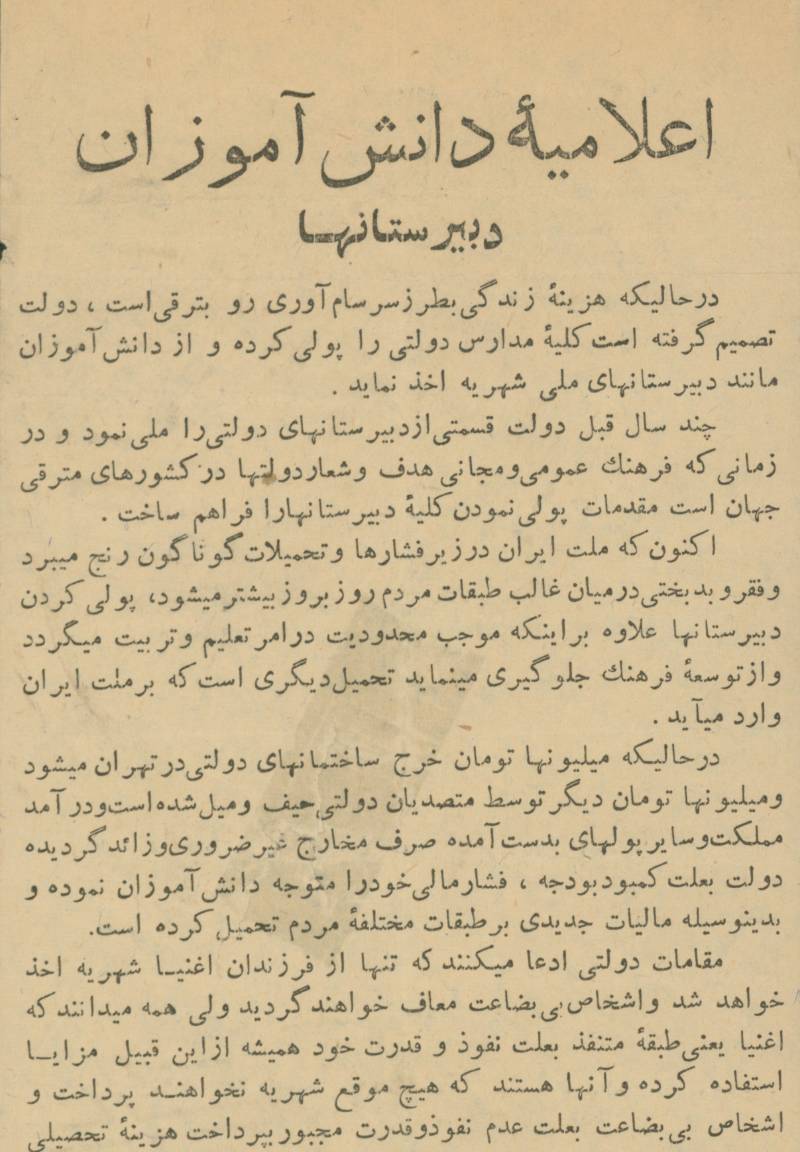 اعلامیهٔ دانش آموزان
دبیرستانهـا
درحالیکه هزینهٔ زندگی بطرز سرسام آوری رو بترقی است ، دولت
تصمیم گرفته است کلیهٔ مدارس دولتی را پولی کرده و از دانش آموزان
مانند دبیرستانهای ملی شهریه اخذ نماید .
چند سال قبل دولت قسمتی از دبیرستانهای دولتی را ملی نمود و در
زمانی که فرهنك عمومی و مجانی هدف و شعار دولتها در کشورهای مترقی
جهان است مقدمات پولی نمودن کلیهٔ دبیرستانها را فراهم ساخت .
اکنون که ملت ایران در زیر فشارها و تحمیلات گوناگون رنج میبرد
و فقر و بدبختی در میان غالب طبقات مردم روز بروز بیشتر میشود، پولی کردن
دبیرستانها علاوه بر اینکه موجب محدودیت در امر تعلیم و تربیت میگردد
و از توسعهٔ فرهنك جلوگیری مینماید تحمیل دیگری است که بر ملت ایران
وارد میآید .
درحالیکه میلیونها تومان خرج ساختمانهای دولتی در تهران میشود
و میلیونها تومان دیگر توسط متصدیان دولتی حیف و میل شده است و در آمد
مملکت و سایر پولهای بدست آمده صرف مخارج غیر ضروری و زائد گردیده
دولت بعلت کمبود بودجه ، فشار مالی خود را متوجه دانش آموزان نموده و
بدینوسیله مالیات جدیدی بر طبقات مختلفهٔ مردم تحمیل کرده است.
مقامات دولتی ادعا میکنند که تنها از فرزندان اغنیـا شهریه اخذ
خواهد شد و اشخاص بی بضاعت معاف خواهند گردید ولی همه میدانند که
اغنیا یعنی طبقهٔ متنفذ بعلت نفوذ و قدرت خود همیشه از این قبیل مزایـا
استفاده کرده و آنها هستند که هیچ موقع شهریه نخواهنـد پرداخت و
اشخاص بی بضاعت بعلت عدم نفوذ و قدرت مجبور بپرداخت هزینهٔ تحصیلی